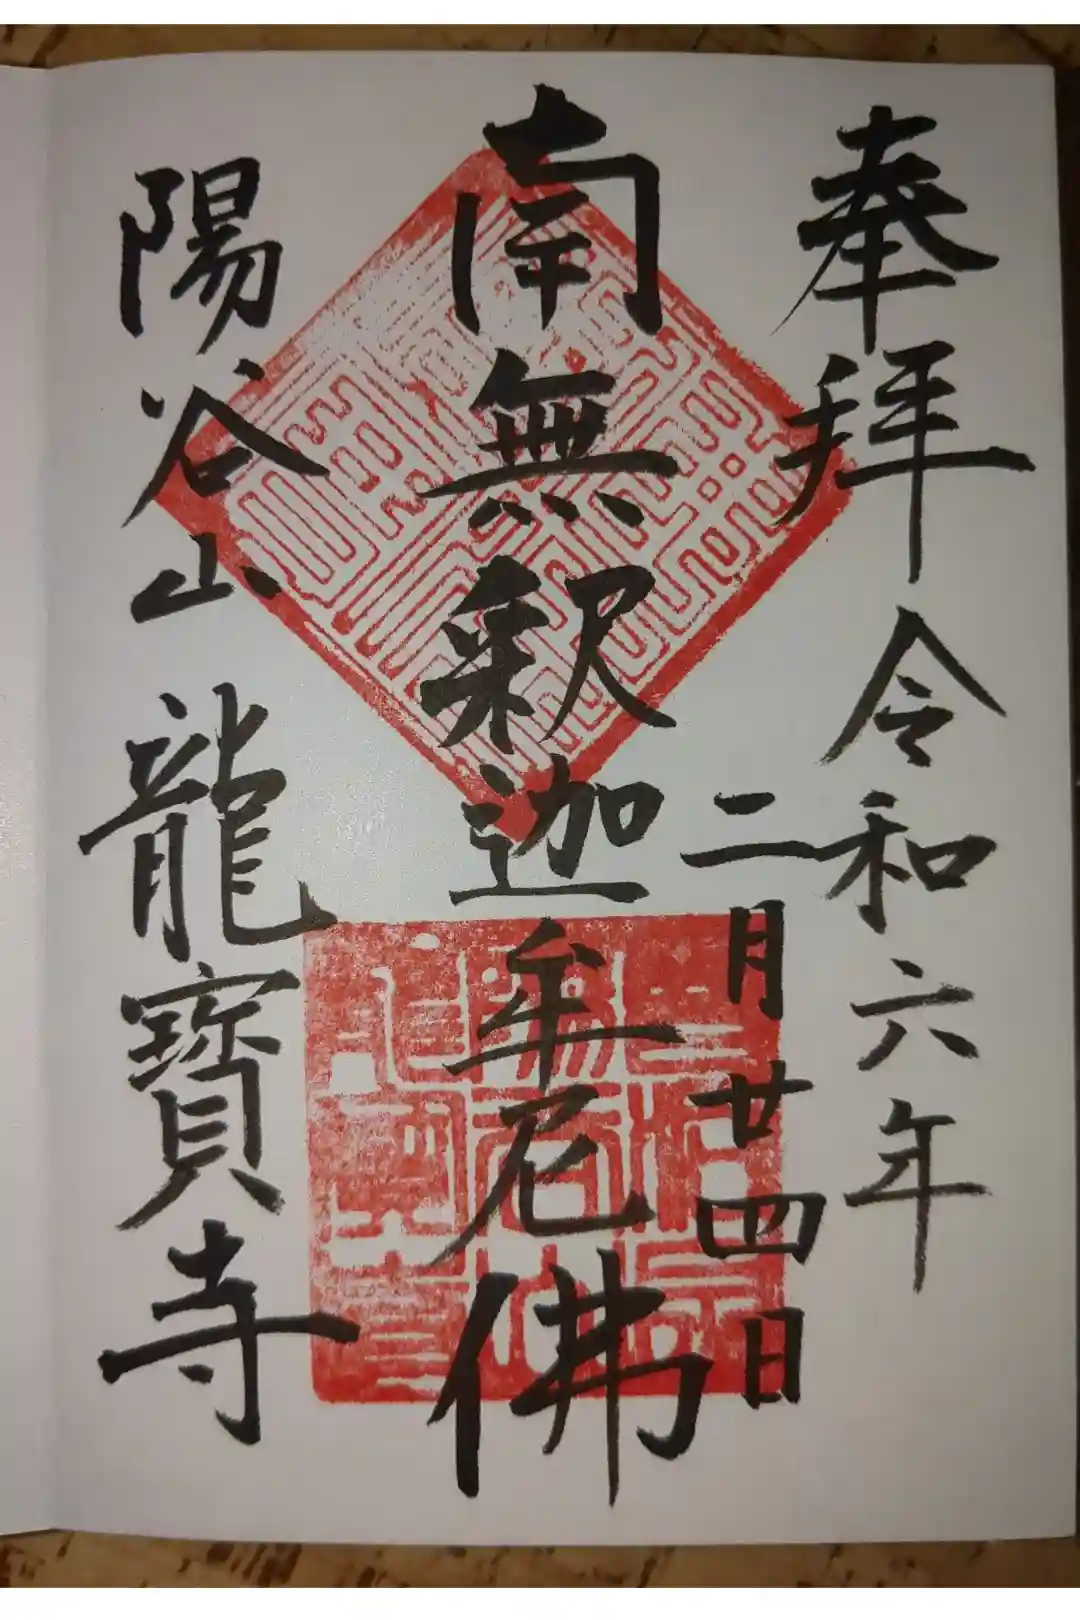 奉拜 令和六年
二月廿四日
南無釈迦牟尼佛
陽谷山 龍寶寺